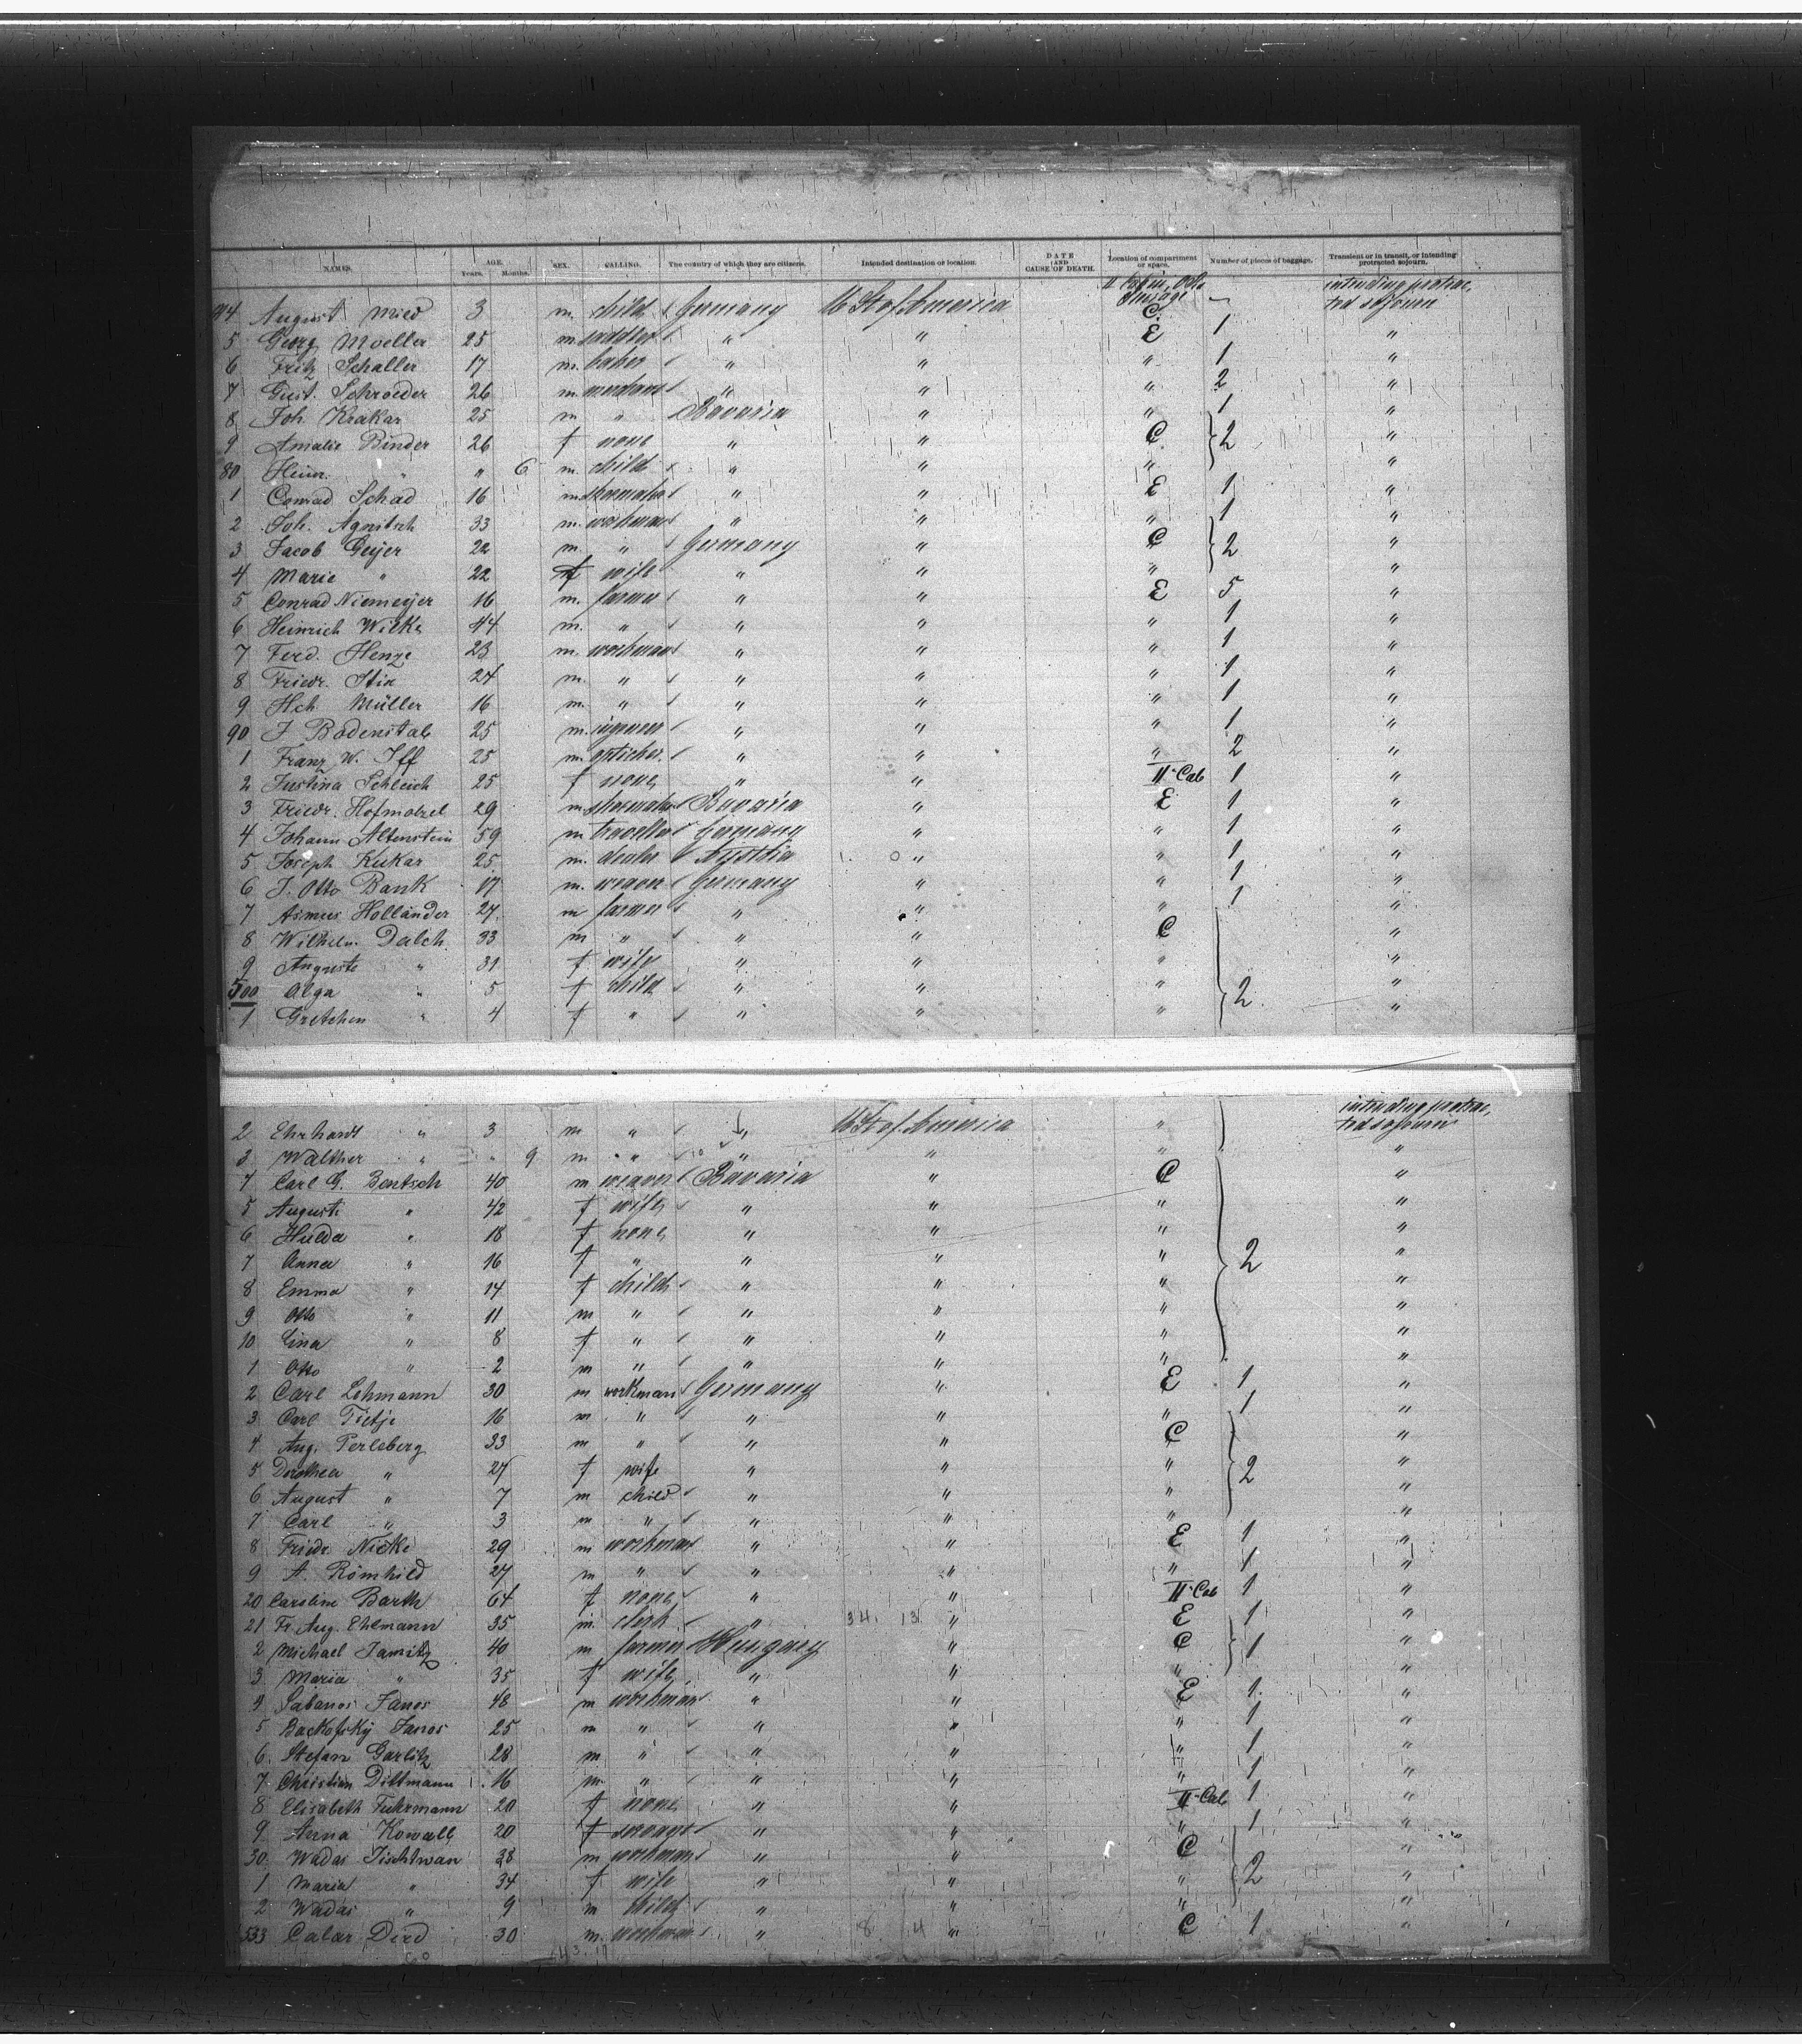 NAMES. AGE. Years. Months. SEX. CALLING. The country of which they are citizens. Intended destination or location. DATE AND CAUSE OF DEATH. Location of compartment or space. Number of pieces of baggage. Transient or in transit, or intending protracted sojourn.
August 3 m. child Germany U St of America C. intending protrac, ted sojourn
5 Georg Moeller 25 m saddler " " E 1 "
6 Fritz Schaller 17 m. baker " " " 1 "
7 Gust. Schroeder 26 m workman " " " 2 "
8 Joh. Krakar 25 m " Bavaria " " 1 "
9 Amalie Binder 26 f none " " C 2 "
80 Heinr. " " 6 m. child " " " "
1 Conrad Schad 16 m shoemaker " " E 1 "
2 Joh. Agnitsch 33 m. workman " " " 1 "
3 Jacob Geijer 22 m. " Germany " C 2 "
4 Marie " 22 f wife " " " "
5 Conrad Niemeijer 16 m. farmer " " E 5 "
6 Heinrich Wilke 44 m. " " " " 1 "
7 Ferd. Henze 23 m. workman " " " 1 "
8 Friedr. Stix 24 m. " " " " 1 "
9 Hch Müller 16 m. " " " " 1 "
90 J Bodenstab 25 m. " " " 1 "
1 Franz W. Iff 25 m. opticher " " " 2 "
2 Justina Schleich 25 f none " " II Cab 1 "
3 Friedr. Hofmoekel 29 m shoemaker Bavaria " E 1 "
4 Johann Altenstein 59 m traveller Germany " " 1 "
5 Joseph Kukar 25 m. dealer Austria " " 1 "
6 J. Otto Bank 17 m. weaver Germany " " 1 "
7 Asmus Holländer 27 m farmer " " " 1 "
8 Wilhelm Dalch 33 m " " " C "
9 Auguste " 31 f wife " " " "
500 Olga " 5 f child " " " 2 "
1 Gretchen " 4 f " " " " "
2 Ehrhardt " 3 m " " U St of America " intending protrac, ted sojourn
3 Walther " " 9 m " " " " "
4 Carl G. Bentsch 40 m weaver Bavaria " C "
5 Auguste " 42 f wife " " " "
6 Hulda " 18 f none " " " "
7 Anna " 16 f " " " " 2 "
8 Emma " 14 f child " " " "
9 Otto " 11 m " " " " "
10 Lina " 8 f " " " " "
1 Otto " 2 m " " " " "
2 Carl Lehmann 30 m workman Germany " E 1 "
3 Carl Tietje 16 m " " " " 1 "
4 Aug. Perleberg 33 m " " " C "
5 Dorothea " 27 f wife " " " 2 "
6 August " 7 m child " " " "
7 Carl " 3 m " " " " "
8 Friedr. Nicke 29 m workman " " E 1 "
9 A. Römhild 27 m " " " " 1 "
20 Caroline Barth 64 f none " " II Cab 1 "
21 Fr. Aug. Ehemann 35 m. clerk " 34. 13 " E 1 "
2 Michael Jamitz 40 m farmer Hungary " C 1 "
3 Maria " 35 f wife " " " "
4 Sabanos Janos 48 m workman " " E 1. "
5 Backofsky Janos 25 m " " " " 1 "
6. Stefan Garlitz 28 m " " " " 1 "
7 Christian Dittmann 16 m. " " " " 1 "
8 Elisabeth Fuhrmann 20 f none " " II Cab 1 "
9 Anna Kowall 20 f servant " " " 1 "
30. Wadas Jischtwan 38 m workman " " C "
1 Maria " 34 f wife " " " 2 "
2 Wadas " 9 m child " " " "
533 Calar Ded 30 m. workman " 8 4 " C 1 "